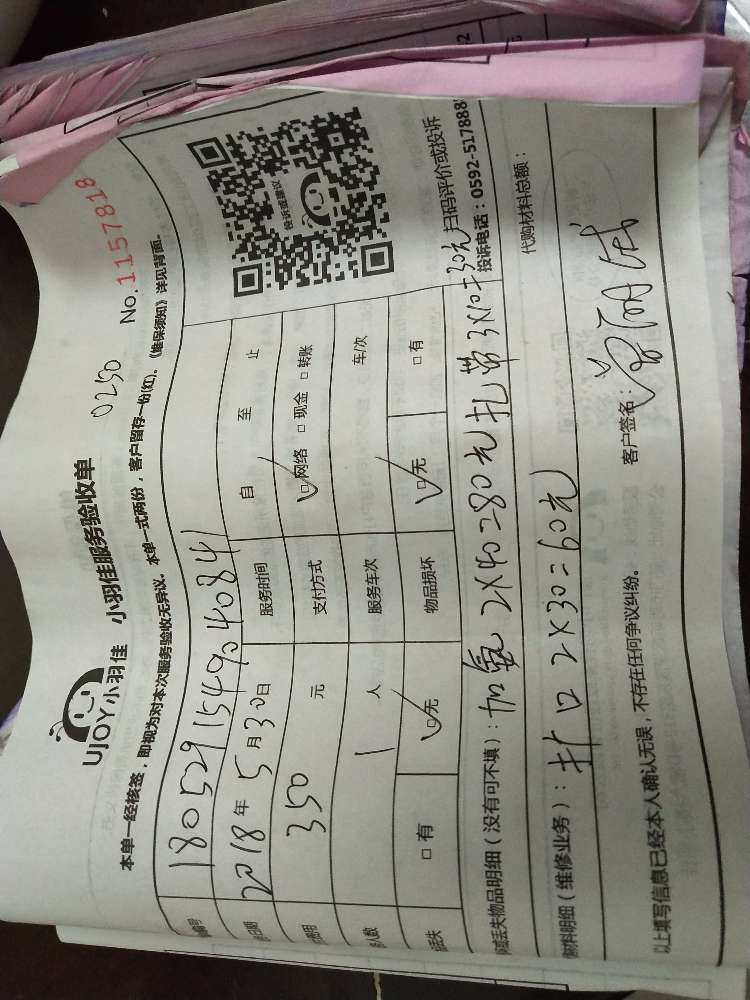 UJOY小羽佳 小羽佳服务验收单
0250 No. 1157818
本单一经核签，即视为对本次服务验收无异议。本单一式两份，客户留存一份(红)。《维保须知》详见背面。
编号 1805291549040841
日期 2018年5月30日 服务时间 自 至 止
费用 350 元 支付方式 ☑网络 □现金 □转账
人数 1 人 服务车次 车/次
丢失 □有 ☑无 物品损坏 ☑无 □有
丢失物品明细（没有可不填）：加氨 2×40=80元 扎带 3×10=30元
材料明细（维修业务）：扩口 2×30=60元 代购材料总额：
以上填写信息已经本人确认无误，不存在任何争议纠纷。 客户签名：
投诉或建议
扫码评价或投诉
投诉电话：0592-517888